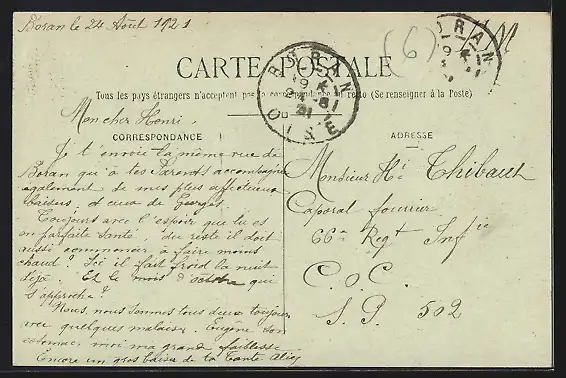 Boran le 24 Août 1921
(6)
BORAN
CARTE POSTALE
BORAN
19
24-8
21
OISE
Tous les pays étrangers n'acceptent pas la correspondance au recto (Se renseigner à la Poste)
Mon cher Henri.
CORRESPONDANCE
Je t'envoie la même vue de
Boran qu'à tes Parents accompagnée
également de mes plus affectueux
baisers, et ceux de Georges.
Toujours avec l'espoir que tu es
en parfaite santé, du reste il doit
aussi commencer à faire moins
chaud? Ici il fait froid la nuit
déjà. Et le mois d'octobre qui
s'approche?
Nous, nous sommes tous deux toujours
avec quelques malaises. Eugène son
estomac, moi ma grande faiblesse
Encore un gros baiser de ta Tante Alice
ADRESSE
Monsieur Hi Thibault
Caporal fourrier
66me Regt Infie
C. O. C.
S. P. 502